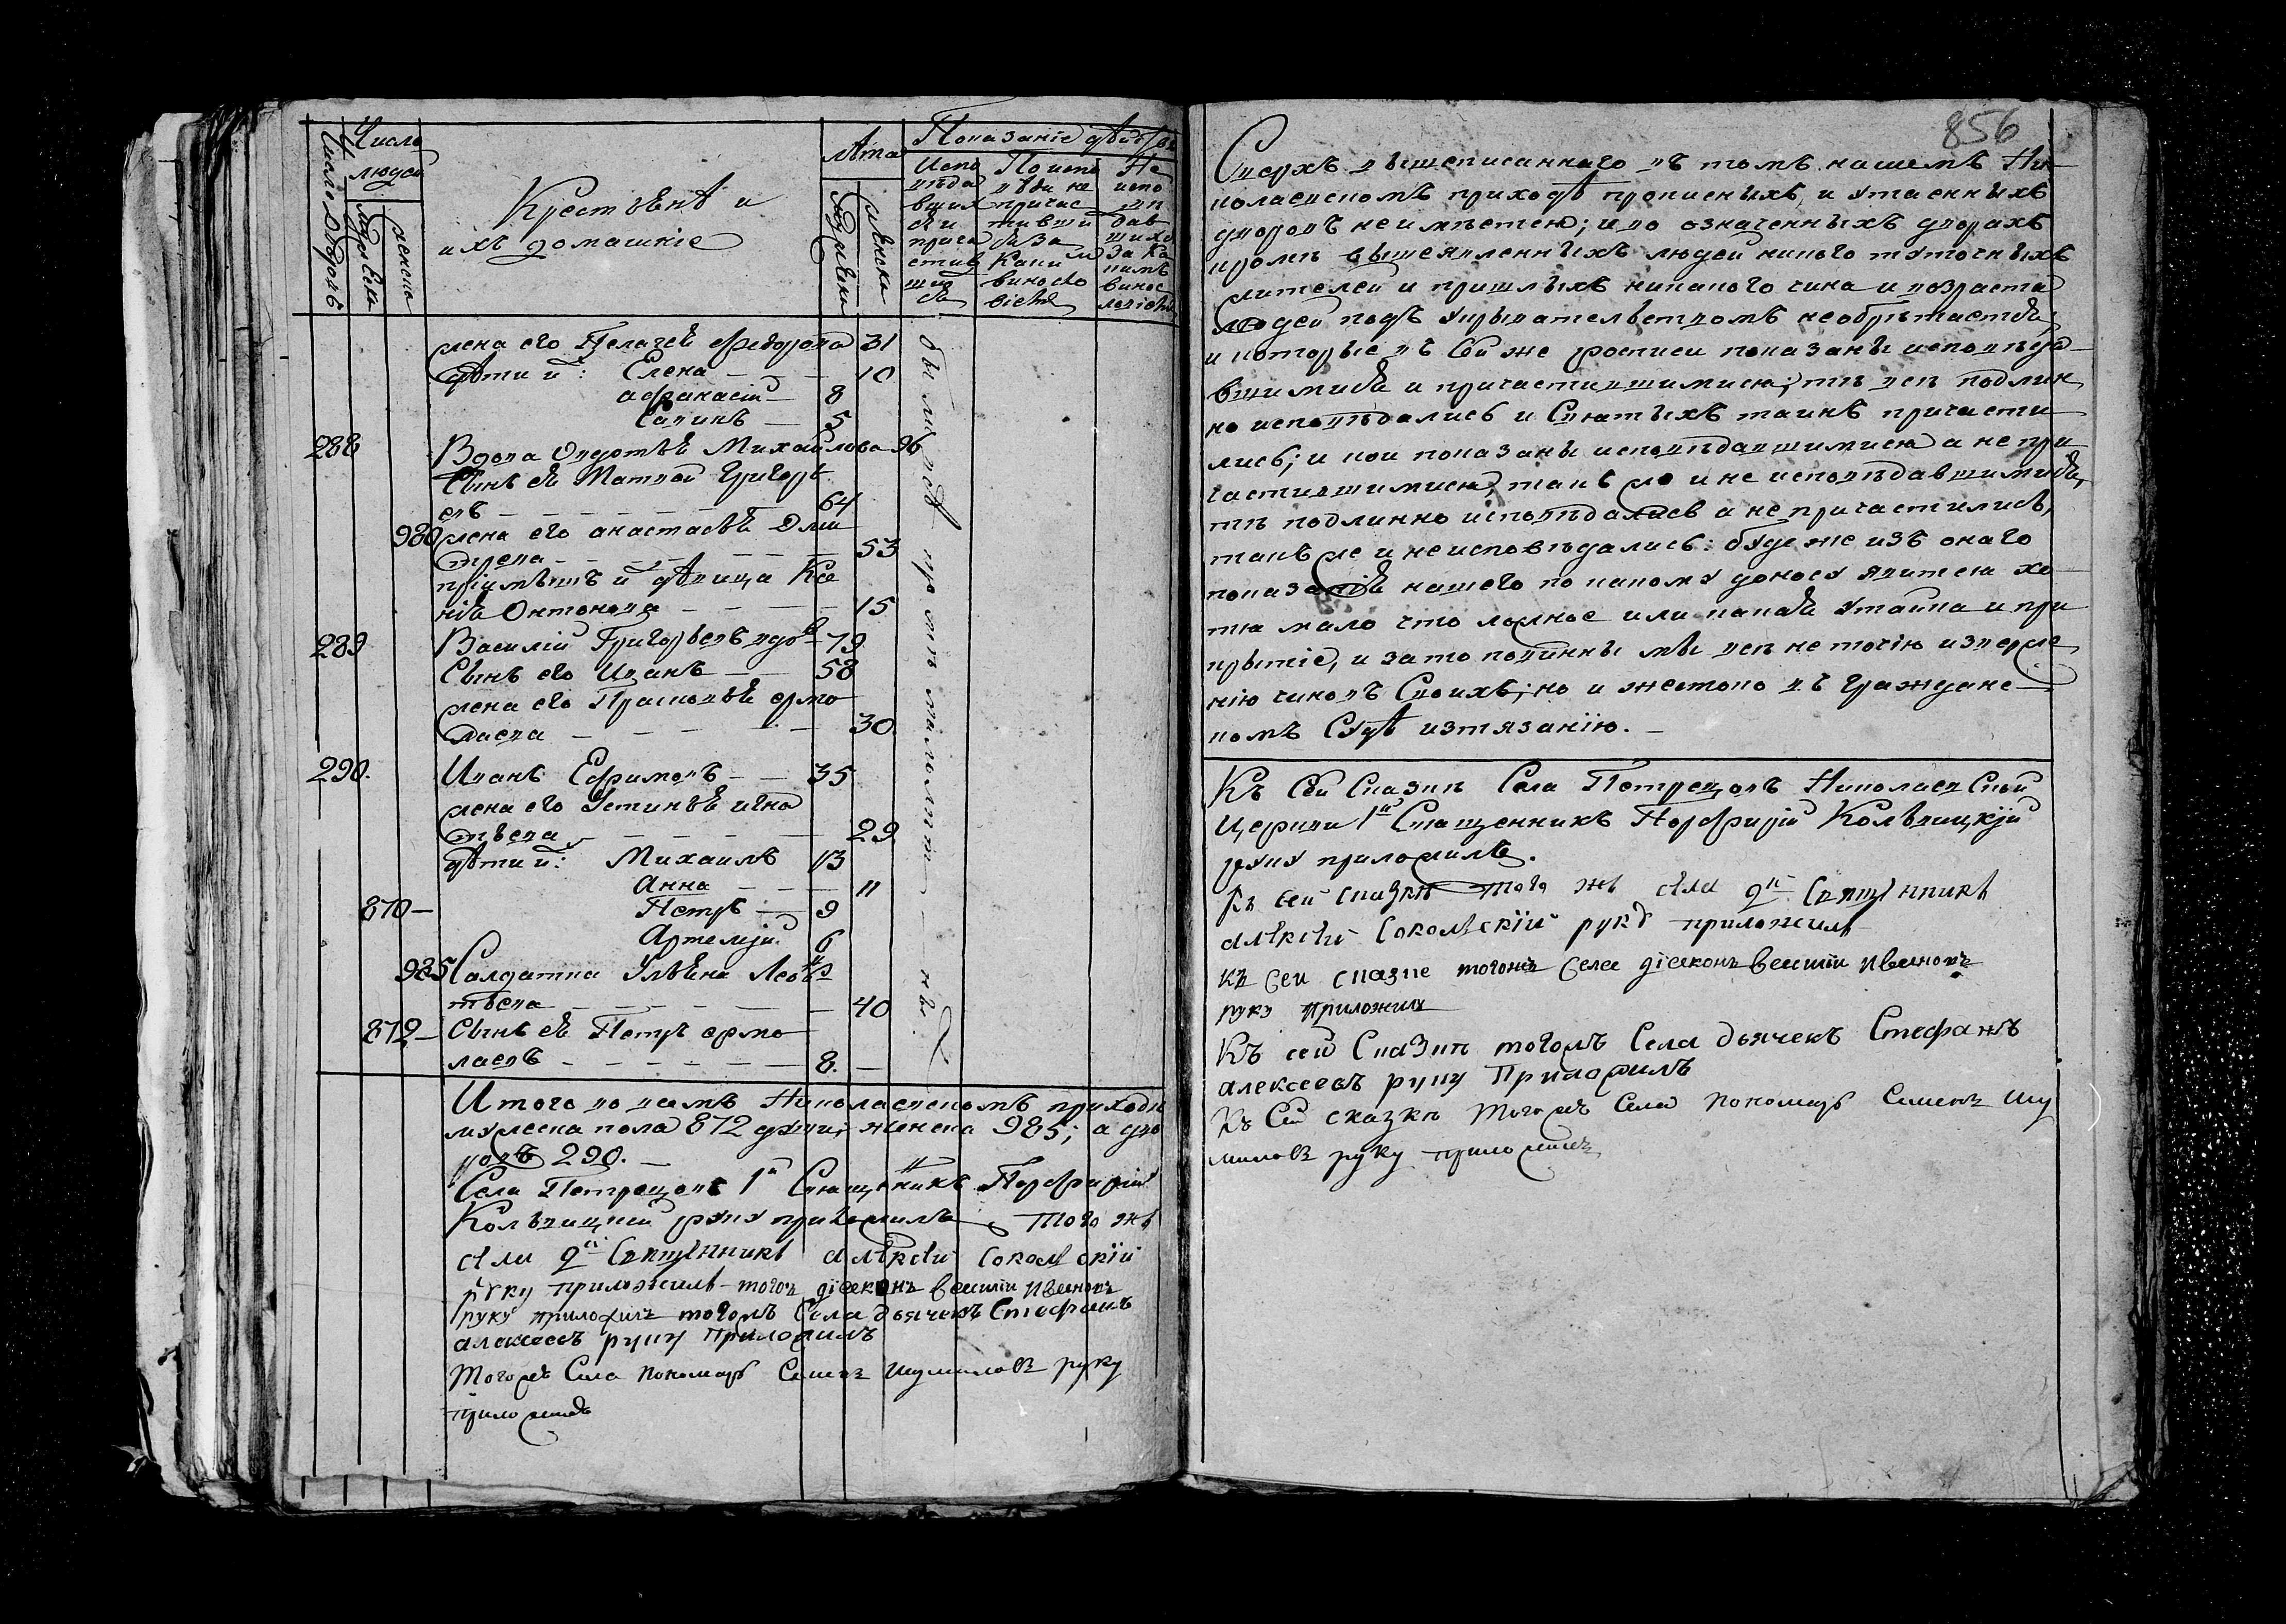 Число дворовъ
Число
людей
мужеска
женска
Крестьянѣ и
ихъ домашніе
Лѣта
мужески
женски
Показаніе дѣйства
Испо
вѣда
вших
ся и
прича
стив
ших
ся
По испо
вѣди не
причас
тивши
ся за
каки м
виносло
віемъ
Не
испо
вѣ
дав
шихся
за ка
кимъ
винос
ловіемъ
жена его Пелагея Федорова 31
дѣти и҃: Елена — 10
Афанасій — 8
Савинъ — 5
288 Вдова Овдотья Михайлова 96
Сынъ ея Матвей Григорь
евъ — 64
980 жена его Анастасья Дми
трева — 53
пріимышъ и҃ дѣвица Ксе
нія Онтонова — 15
289 Василій Григорьевъ вдовъ 79
Сынъ его Иванъ — 58
жена его Прасковья Ермо
лаева — 30
290. Иванъ Ефимовъ — 35
жена его Устинья Игна
тьева — 29
дѣти и҃: Михаилъ 13
Анна — 11
870 — Петръ — 9
Артемій 6
985 Салдатка Ульяна Леон
тьева — 40
872 — Сынъ ея Петръ Ермо
лаевъ — 8.
Итого во всемъ Николаевскомъ приходѣ
мужеска пола 872 души, женска 985; а дво
ровъ 290. —
Села Петрецовъ 1й Священникъ Порфирій
Кольвицкій руку приложилъ Того жъ
села 2й Священникъ Алексѣй Сокольскій
руку приложилъ тогожъ діаконъ Василій Ивановъ
руку приложилъ тогожъ Села дьячекъ Стефанъ
Алексеевъ руку приложилъ
Тогожъ Села пономарь Семенъ Шумиловъ руку
приложилъ
856
Сверхъ вышеписаннаго въ томъ нашемъ Ни
колаевскомъ приходѣ прописныхъ и утаенныхъ
дворовъ неимѣется; и во означенныхъ дворахъ
кромѣ вышеявленныхъ людей никого туточныхъ
жителей и пришлыхъ никакого чина и возраста
людей подъ укрывательствомъ необрѣтается;
и которые въ сей же росписи показаны исповѣда
вшимися и причастившимися, тѣ всѣ подлин
но исповѣдались и Святыхъ таинъ причасти
лись; и кои показаны исповѣдавшимися а не при
частившимися, такъ же и не исповѣдавшимися,
тѣ подлинно исповѣдались а не причастились,
такъ же и неисповѣдались: буде же изъ онаго
показанія нашего по какому доносу явится хо
тя мало что ложное или какая утайка и при
крытіе, и зато повинны мы всѣ неточію изверже
нію чиновъ своихъ; но и жестоко въ гражданс
комъ Судѣ изтязанію. —
Къ сей Сказкѣ Села Петрецовъ Николаевской
Церкви 1й Священникъ Порфирій Кольвицкій
руку приложилъ.
Къ сей сказкѣ того жъ села 2й Священникъ
Алексѣй Сокольскій руку приложилъ
къ сеи сказке тогожъ села діаконъ Василіи Ивановъ
руку приложилъ
Къ сей Сказкѣ тогожъ Села дьячекъ Стефанъ
Алексеевъ руку Приложилъ
Къ Сей сказкѣ тогожъ Села пономарь Семенъ Шу
миловъ руку приложилъ